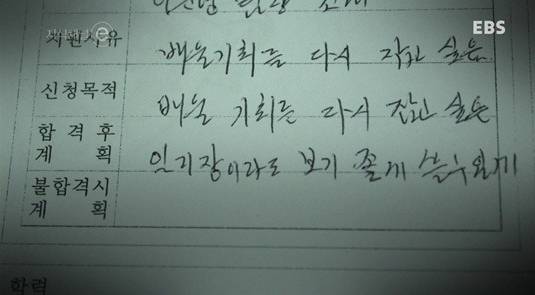 EBS
지원사유
배울기회를 다시 잡고 싶은
신청목적
배울 기회를 다시 잡고 싶은
합격후
계 획
일기장이라도 보기 좋게 쓸수있게
불합격시
계 획
학력